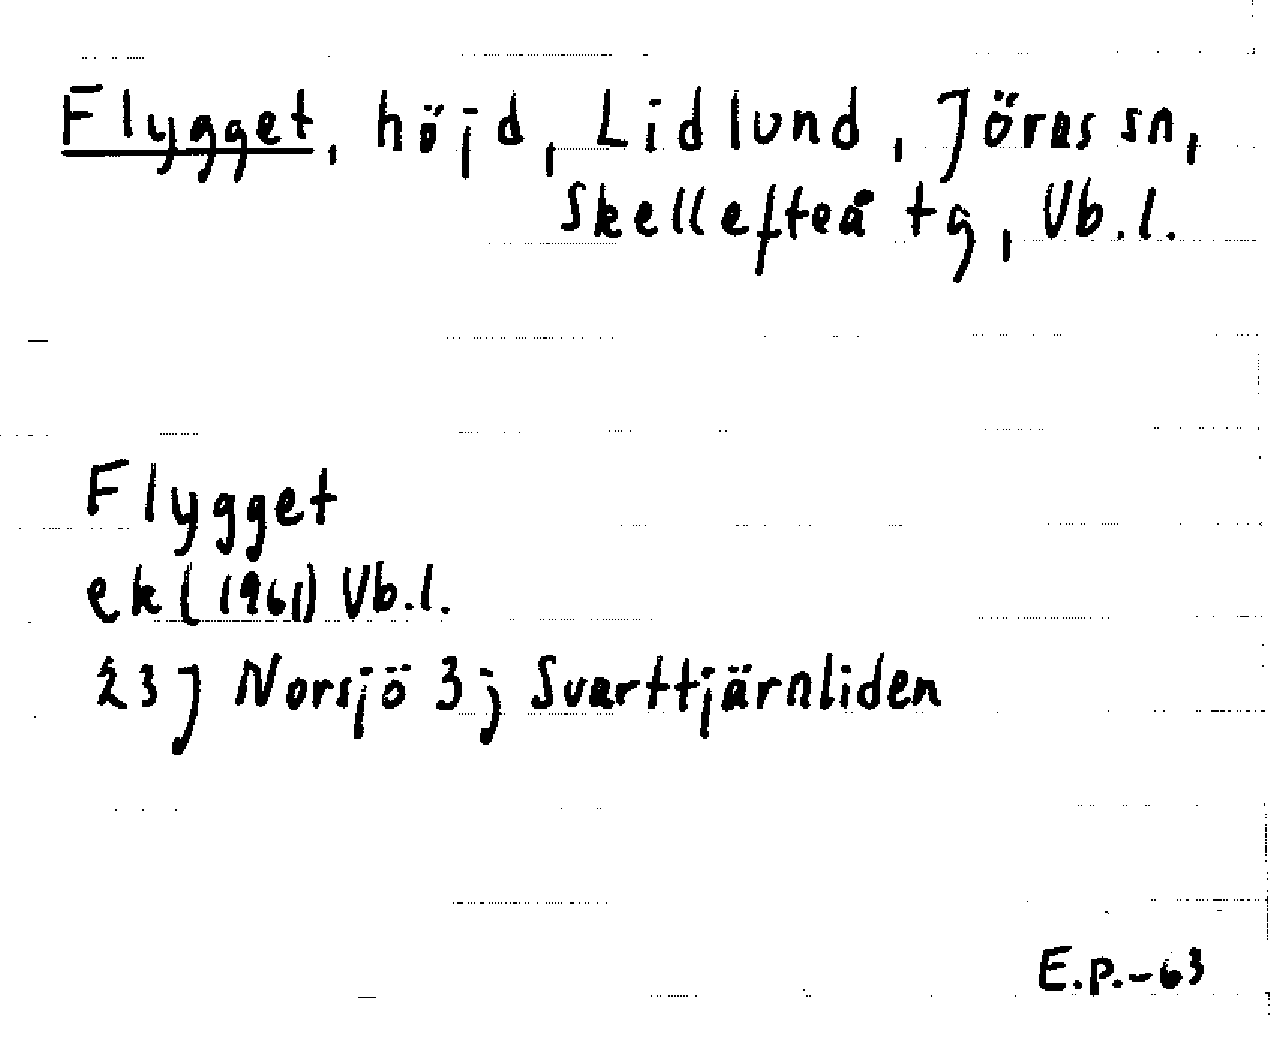 Flygget, höjd, Lidlund, Jörns sn,
Skellefteå tg, Vb.l.
Flygget
ek (1961) Vb.l.
23J Norsjö 3j Svarttjärnliden
E.P.-63